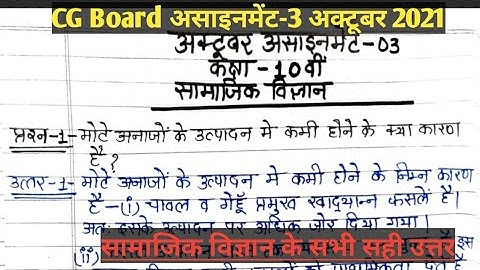 CG Board असाइनमेंट-3 अक्टूबर 2021
अक्टूबर असाइनमेंट-03
कक्षा - 10वीं
सामाजिक विज्ञान
प्रश्न-1- मोटे अनाजों के उत्पादन में कमी होने के क्या कारण
हैं?
उत्तर-1- मोटे अनाजों के उत्पादन में कमी होने के निम्न कारण
हैं -(i) चावल व गेहूँ प्रमुख खाद्यान्न फसलें हैं।
अतः इसके उत्पादन पर अधिक जोर दिया गया।
(ii)
सामाजिक विज्ञान के सभी सही उत्तर